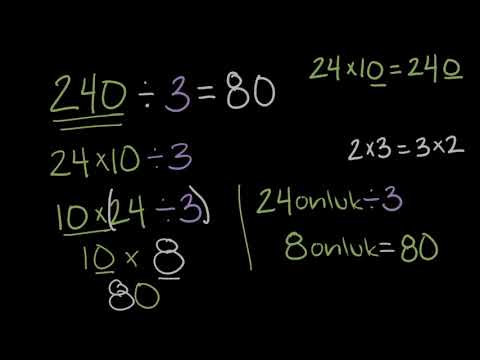 240 ÷ 3 = 80
24 × 10 = 240
2 × 3 = 3 × 2
24 × 10 ÷ 3
10 × (24 ÷ 3)
10 × 8
80
24 onluk ÷ 3
8 onluk = 80